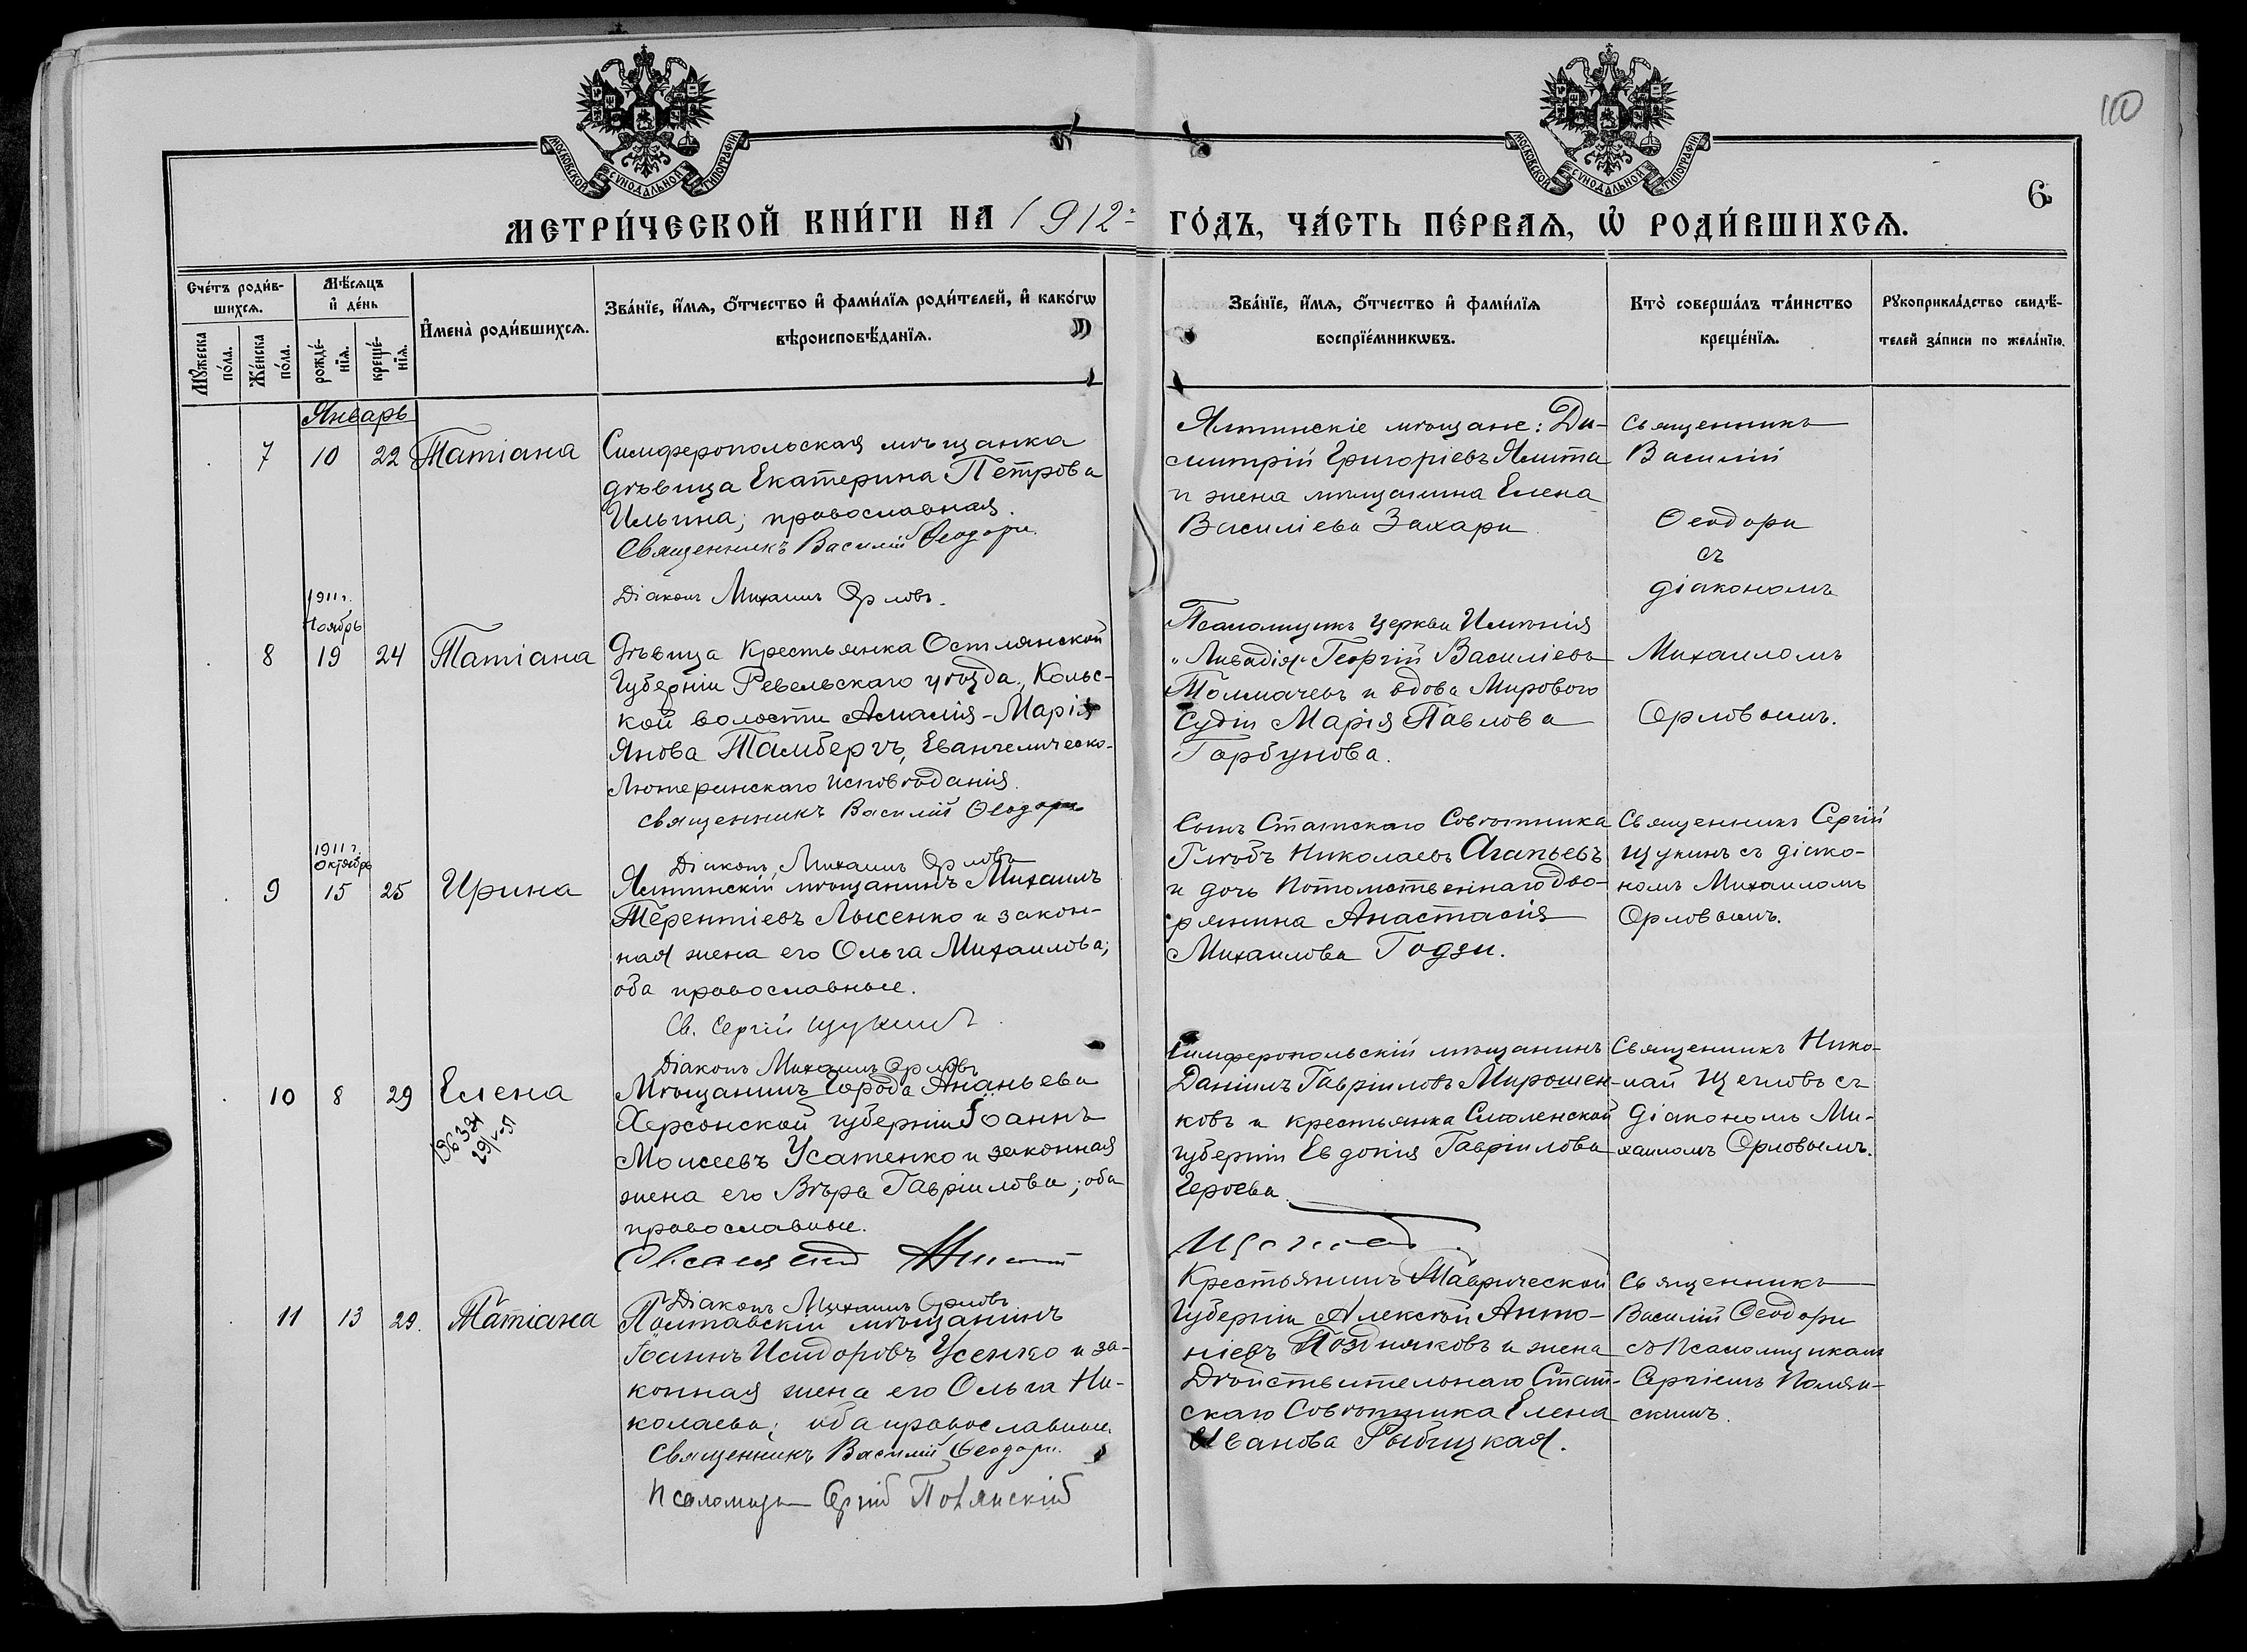 110
МОСКОВСКОЙ СУНОДАЛЬНОЙ ТИПОГРАФІИ
МОСКОВСКОЙ СУНОДАЛЬНОЙ ТИПОГРАФІИ
6
МЕТРИ́ЧЕСКОЙ КНИ́ГИ НА 1912 ГО́ДЪ, ЧА́СТЬ ПЕ́РВАѦ, Ѡ҆ РОДИ́ВШИХСѦ.
Сче́тъ роди́в-
шихсѧ.
Мꙋ́жеска по́ла.
Же́нска по́ла.
Мѣ́сѧцъ и҆ де́нь
рожде́-нїѧ.
креще́-нїѧ.
И҆мена̀ роди́вшихсѧ.
Зва́нїе, и҆́мѧ, ѻ҆́тчество и҆ фами́лїѧ роди́телей, и҆ како́гѡ
вѣроисповѣ́данїѧ.
Зва́нїе, и҆́мѧ, ѻ҆́тчество и҆ фами́лїѧ
воспрїе́мникѡвъ.
Кто̀ соверша́лъ та́инство
креще́нїѧ.
Рꙋкоприкла́дство свидѣ́-
телей за́писи по жела́нїю.
Январь
7 10 22 Татіана
Симферопольская мѣщанка
дѣвица Екатерина Петрова
Ильина; православная.
Священникъ Василій Ѳеодори.
Діаконъ Михаилъ Орловъ.
Ялтинскіе мѣщане: Ди-
митрій Григоріевъ Ялита
и жена мѣщанина Елена
Василіева Захари
Священникъ
Василій
Ѳеодори
съ
діакономъ
Михаиломъ
Орловымъ.
1911 г.
Ноябрь
8 19 24 Татіана
Дѣвица крестьянка Остлянской
Губерніи Ревельскаго уѣзда, Кольс-
кой волости Амалія-Марія
Янова Тамбергъ, Евангелическо-
Лютеранскаго исповѣданія.
священникъ Василій Ѳеодори
Діаконъ, Михаилъ Орловъ
Псаломщикъ церкви Имѣнія
„Ливадія" Георгій Василіевъ
Толмачевъ и вдова Мирового
Судіи Марія Павлова
Горбунова.
1911 г.
Октябрь
9 15 25 Ирина
Ялтинскій мѣщанинъ Михаилъ
Терентіевъ Лысенко и закон-
ная жена его Ольга Михаилова;
оба православные.
Св. Сергій Щукинъ
Діаконъ Михаилъ Орловъ
Сынъ Статскаго Совѣтника
Глѣбъ Николаевъ Агапьевъ
и дочь Потомственнаго дво-
рянина Анастасія
Михаилова Годзи.
Священникъ Сергій
Щукинъ съ діако-
номъ Михаиломъ
Орловымъ.
10 8 29 Елена
Мѣщанинъ Города Ананьева
Херсонской губерніи Іоаннъ
Моисеевъ Усатенко и законная
жена его Вѣра Гавріилова; оба
православные.
Священ
Діаконъ Михаилъ Орловъ
Симферопольскій мѣщанинъ
Даніилъ Гавріиловъ Мирошен-
ковъ и крестьянка Смоленской
губерніи Евдокія Гавріилова
Героева.
Щегловъ
Священникъ Нико-
лай Щегловъ съ
діакономъ Ми-
хаиломъ Орловымъ.
11 13 29. Татіана
Полтавскій мѣщанинъ
Іоаннъ Исидоровъ Усенко и за-
конная жена его Ольга Ни-
колаева; оба православные.
Священникъ Василій Ѳеодори.
Псаломщ Сергій Полянскій
Крестьянинъ Таврической
Губерніи Алексѣй Анто-
ніевъ Поздняковъ и жена
Дѣйствительнаго Стат-
скаго Совѣтника Елена
Иванова Рыбицкая.
Священникъ
Василій Ѳеодори
съ Псаломщикомъ
Сергіемъ Полян-
скимъ.